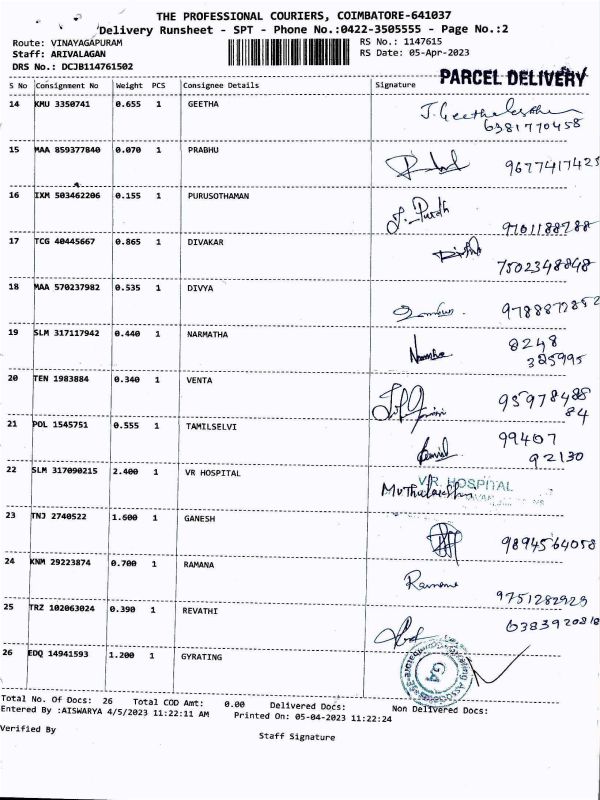 THE PROFESSIONAL COURIERS, COIMBATORE-641037
Delivery Runsheet - SPT - Phone No.:0422-3505555 - Page No.:2
Route: VINAYAGAPURAM RS No.: 1147615
Staff: ARIVALAGAN RS Date: 05-Apr-2023
DRS No.: DCJB114761502
PARCEL DELIVERY
S No Consignment No Weight PCS Consignee Details Signature
14 KMU 3350741 0.655 1 GEETHA
6381770458
15 MAA 859377840 0.070 1 PRABHU
9677417425
16 IXM 503462206 0.155 1 PURUSOTHAMAN
17 TCG 40445667 0.865 1 DIVAKAR
7502348848
18 MAA 570237982 0.535 1 DIVYA
19 SLM 317117942 0.440 1 NARMATHA
8248
385995
20 TEN 1983884 0.340 1 VENTA
95978488
84
21 POL 1545751 0.555 1 TAMILSELVI
99407
92130
22 SLM 317090215 2.400 1 VR HOSPITAL
V.R. HOSPITAL
23 TNJ 2740522 1.600 1 GANESH
9894564058
24 KNM 29223874 0.700 1 RAMANA
Ramana
9751282929
25 TRZ 102063024 0.390 1 REVATHI
6383920818
26 EDQ 14941593 1.200 1 GYRATING
G4
Total No. Of Docs: 26 Total COD Amt: 0.00 Delivered Docs: Non Delivered Docs:
Entered By :AISWARYA 4/5/2023 11:22:11 AM Printed On: 05-04-2023 11:22:24
Verified By
Staff Signature